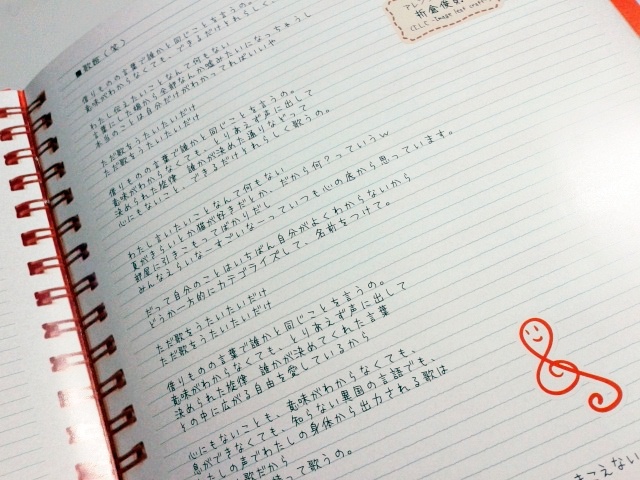 ■歌姫(笑)
借りものの言葉で誰かと同じことを言うの。
意味がわからなくても、できるだけそれらしく、
わたし伝えたいことなんて何もない
言葉にした傍から全部なんか嘘みたいになっちゃうし
本当のことは自分だけがわかってればいいや
ただ歌をうたいたいだけ
ただ歌をうたいたいだけ
借りものの言葉で誰かと同じことを言うの。
意味がわからなくても、とりあえず声に出して
決められた旋律、誰かが決めた通りなぞって
心にもないこと、できるだけそれらしく歌うの。
わたし言いたいことなんて何もない
夏がきらいとか猫が好きだとか、だから何?っていうw
部屋に引きこもってばかりだし
みんなえらいな、すごいなーっていつも心の底から思っています。
だって自分のことはいちばん自分がよくわからないから
どうか一方的にカテゴライズして、名前をつけて。
ただ歌をうたいたいだけ
ただ歌をうたいたいだけ
借りものの言葉で誰かと同じことを言うの。
意味がわからなくても、とりあえず声に出して
決められた旋律、誰かが決めてくれた言葉
その中に広がる自由を愛しているから
心にもないことも、意味がわからなくても、
息ができなくても、知らない異国の言語でも、
わたしの声でわたしの身体から出力される歌は
歌だから
って歌うの。
折倉俊
こえない